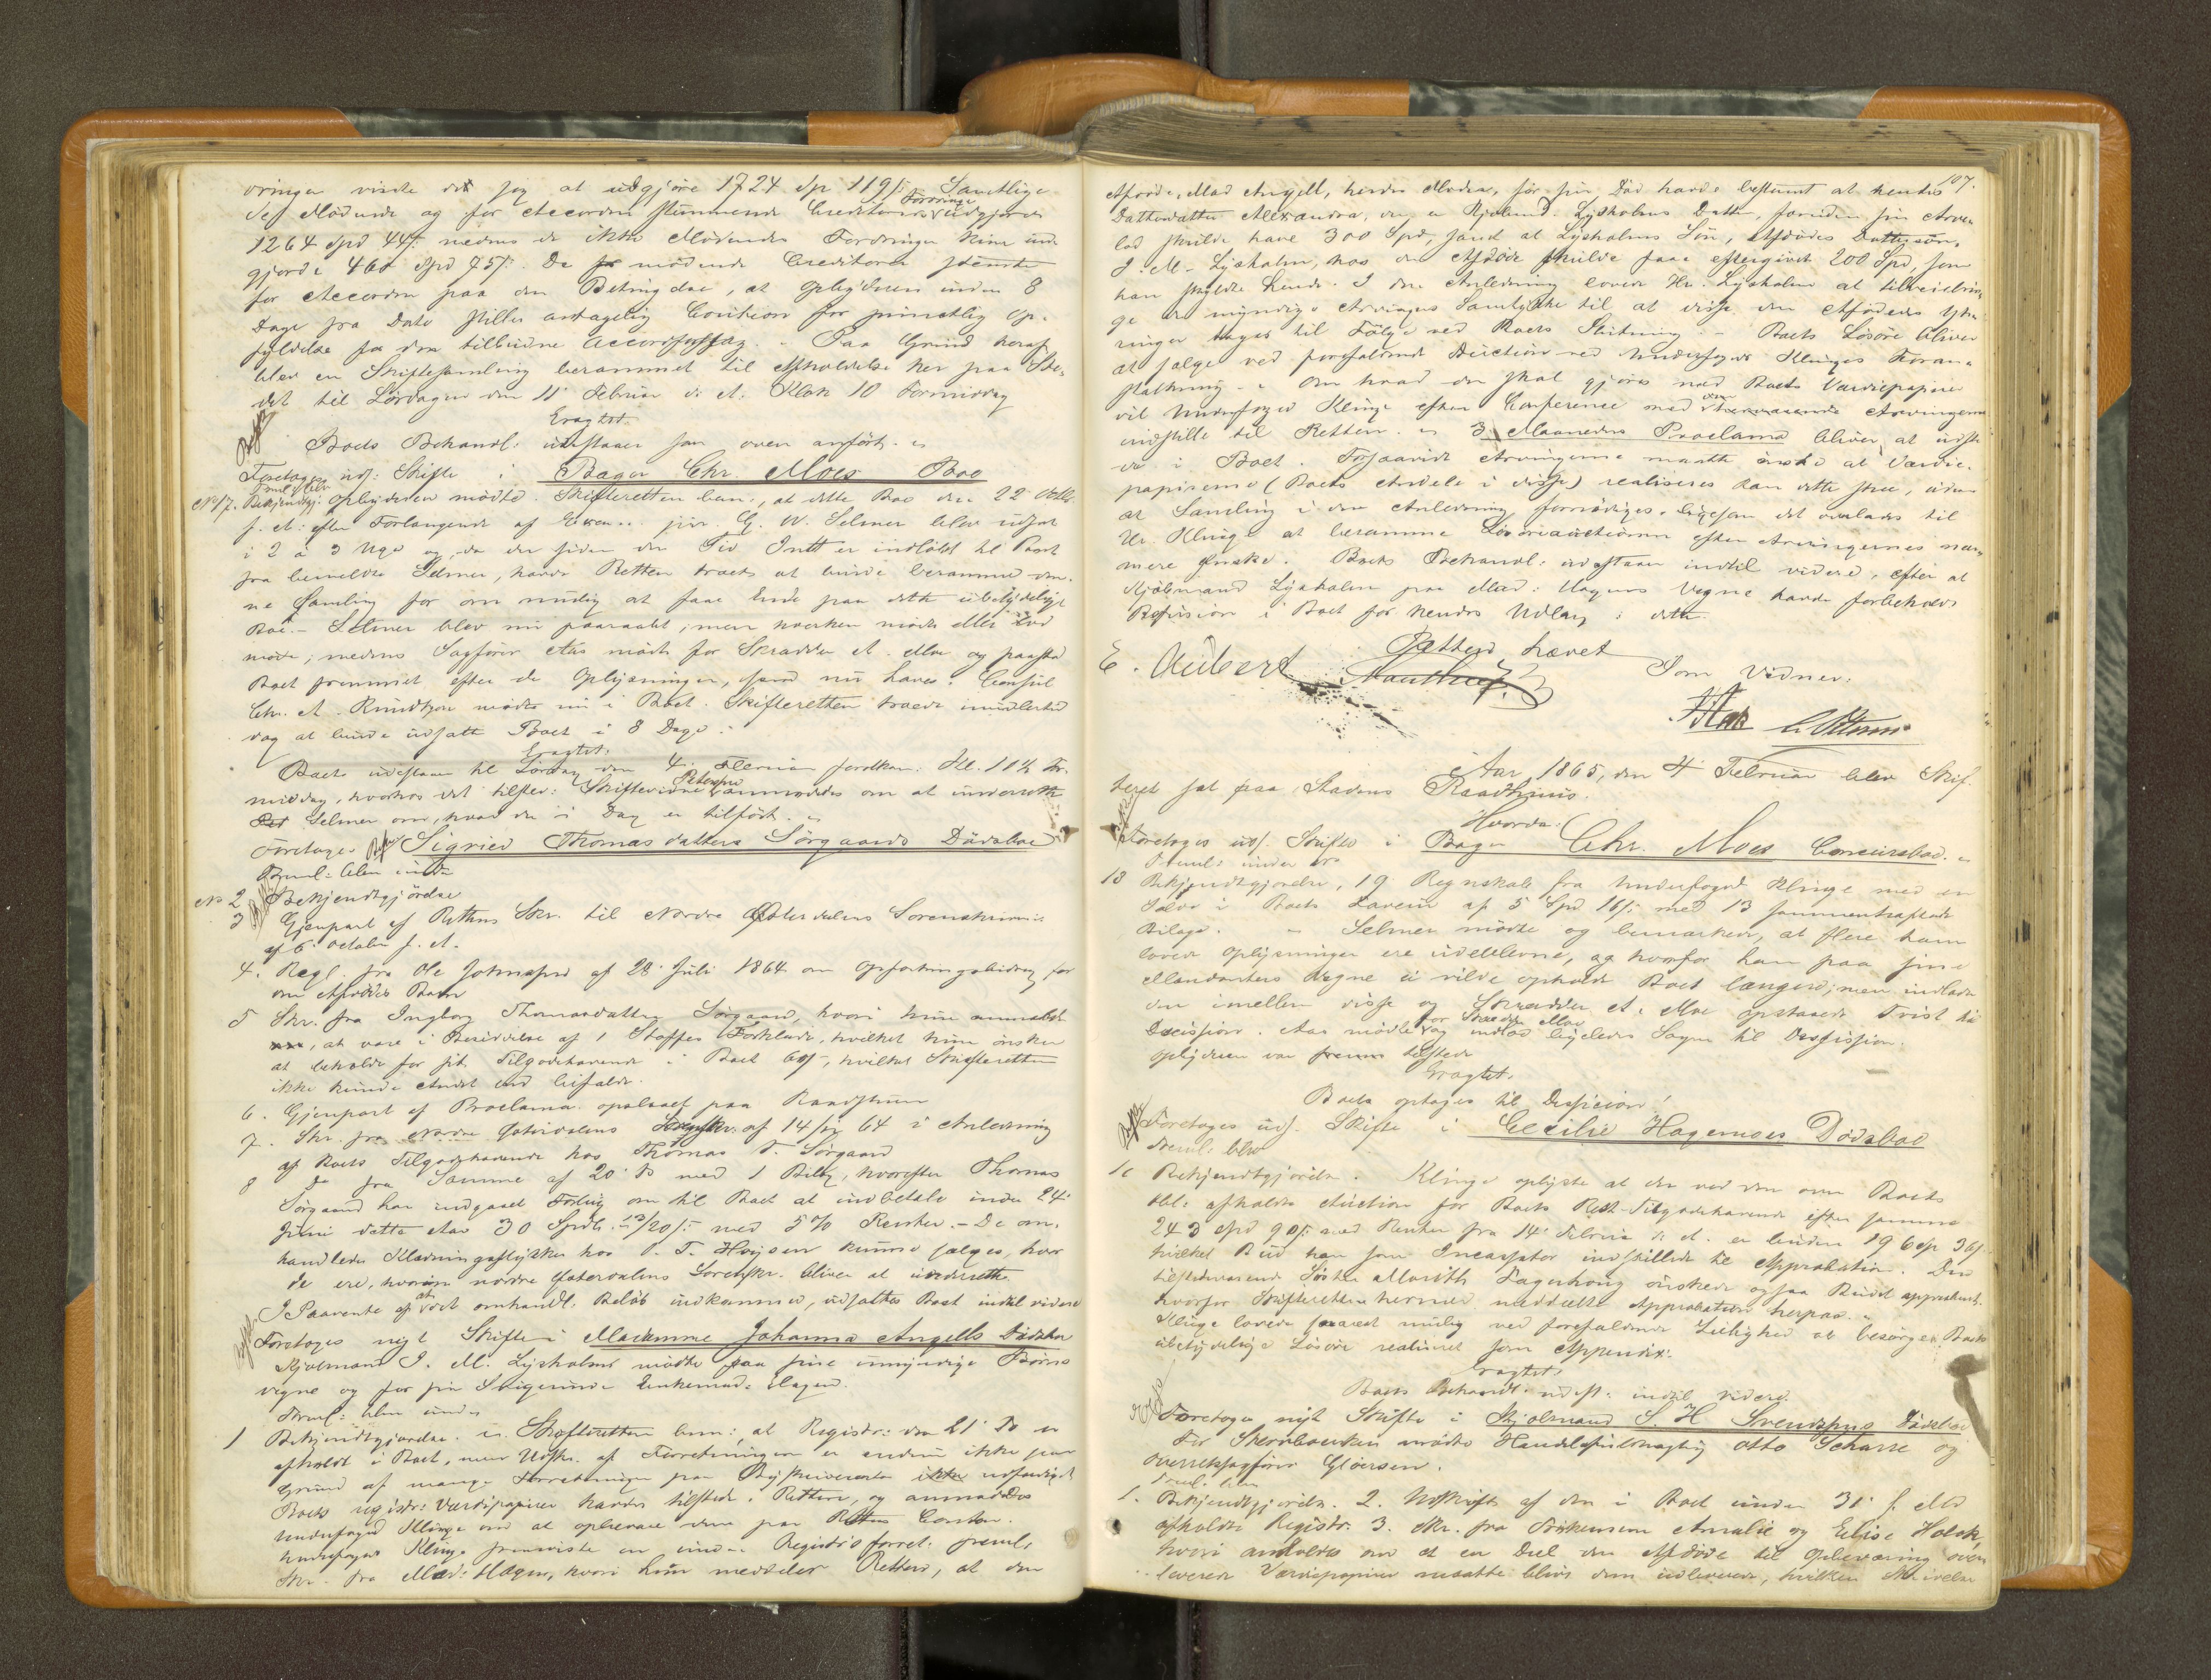 vringer viste det sig at udgjøre 1724 Sp 119 s. Samtlige
de Mødende og for Accorden stemmende Creditorers Fordringer udgjorde
1264 Spd 44 s. medens de ikke Mødendes Fordringer kun ud-
gjorde 460 Spd 75 s. De mødende Creditorer stemte
for Accorden paa den Betingelse, at Opbyderen inden 8
Dage fra Dato stiller antagelig Caution for prinselig Op-
fyldelse fra den tilbudne Accordsforslag. - Paa Grund heraf
blev en Skiftesamling berammet til Afholdelse her paa Ste-
det til Lördagen den 11 Februar d. A. Klok 10 Formiddag
Eragtet
Boets Behandl: udstaaer som oven anført.
Foretages udf: Skifte i Bager Chr. Moes Boe
Freml: blev
No 17. Bekjendtgj: Opbyderen mødte. Skifteretten bem:, at dette Boe den 22 Octbr.
f. A. efter Forlangende af Exam. jur. G. W. Selmer blev udsat
i 2 a 3 Uger og, da der siden den Tid Intet er indløbet til Boet
fra bemeldte Selmer, havde Retten troet at burde beramme den-
ne Samling for om mulig at faae Ende paa dette ubetydelige
Boe. - Selmer blev nu paaraabt, men hverken mødte eller lod
møde; medens Sagfører Aas mødte for Skrædder A. Moe og paastod
Boet fremmet efter de Oplysninger, som nu haves. Consul
Chr. A. Rundtzon mødte nu i Boet. Skifteretten troede imidlertid
dog at burde udsætte Boet i 8 Dage.
Eragtet
Boet udstaaer til Lördag den 4. Februar førstkom: Kl. 11½ For-
middag, hvorhos det tilstev: Skiftevidne Petersen anmodedes om at underrette
Selmer om, hvad der i Dag er tilført.
Foretages Sigried Thomasdatters Sörgaards Dödsboe
Freml: blev under
No 2 Bekjendtgjørelse
3 Gjenpart af Rettens Skr. til Nordre Østerdalens Sorenskriveri
af 6 October f. A.
4. Regl. fra Ole Johnsen af 28 Juli 1864 om Opfostringsbidrag for
den Afdødes Barn
5 Skr. fra Ingborg Thomasdatter Sörgaard, hvori hun anmeldte
at være i Besiddelse af 1 Stoffes Forklæde, hvilket hun ønsker
at beholde for sit Tilgodehavende i Boet 60 s, hvilket Skifteretten
ikke kunde Andet end bifalde.
6. Gjenpart af Proclama opslaaet paa Raadstuen
7. Skr. fra Nordre Østerdalens Sorenskr. af 14/12 64 i Anledning
af Boets Tilgodehavende hos Thomas T. Sörgaard
8 Do fra Samme af 20 Do med 1 Bilag, hvorefter Thomas
Sörgaard har indgaaet Forlig om til Boet at indbetale inden 24
Juni dette Aar 30 Spdlr. 13/20 s. med 5 % Renter. - De om-
handlede Klædningsstykker hos O. T. Hoysen kunne sælges, hvor
de ere, hvorom nordre Østerdalens Sorenskr. bliver at underrette
I Paavente af at det omhandl: Beløb indkommer, udsættes Boet indtil videre
Foretages nyt Skifte i Madamme Johanna Angells Dödsboe
Kjøbmand J. M. Lysholms mødte paa sine umyndige Børns
vegne og for sin Svigerinde Enkemad: Hagen.
Freml: blev under
1 Bekjendtgjørelse. Skifteretten bem:, at Registr: den 21 Do er
afholdt i Boet, men Udskr. af Forretningen er endnu ikke paa
Grund af mange Forretninger paa Byskriveriet udfærdiget
Boets registr: Værdipapirer havdes tilstede i Retten, og anmodedes
Underfoged Klinge om at opbevare dem paa Rettens Contor.
Underfoged Klinge fremviste en under Registr:forret. freml.
Skr. fra Mad: Hagen, hvori hun meddeler Retten, at den
107.
Afdøde, Mad Angell, hendes Moder, før sin Död havde bestemt at hendes
Datterdatter Alexandra, der er Kjøbmd. Lysholms Datter, foruden sin Arve-
lod skulde have 300 Spd, samt at Lysholms Søn, Afdødes Dattersøn,
J. M. Lysholm, hos den Afdøde skulde faae eftergivet 200 Spd, som
han skyldte hende. I den Anledning lovede Hr. Lysholm at tilveiebrin-
ge de myndige Arvingers Samtykke til at disse den Afdødes Ytt-
ringer tages til Følge ved Boets Slutning. - Boets Løsøre bliver
at sælge ved forefaldende Auction ved Underfoged Klinges Foran-
staltning. - Om hvad der skal gjøres med Boets Værdipapirer
vil Underfoged Klinge efter Conference med Arvingerne
indstille til Retten. 3 Maaneders Proclama bliver at udste-
de i Boet. Forsaavidt Arvingerne maatte ønske at Værdie-
papirerne (Boets Andele i disse) realiseres kan dette skee, uden
at Samling i den Anledning fornødiges, ligesom det overlades til
Ur. Klinge at beramme Løsøreauctionen efter Arvingernes nær-
mere Ønske. Boets Behandl: udstaaer indtil videre, efter at
Kjøbmand Lysholm paa Mad: Hagens Vegne havde forbeholdt
Refusion i Boet for hendes Udlæg i dette.
Retten hævet
E. Aubert
Som Vidner:
Aar 1865, den 4 Februar blev Skif-
teret sat paa Stadens Raadhuus.
Hvorda:
Foretages udf. Skifte i Bager Chr. Moes Concursboe.
Freml: under No
18 Bekjendtgjørelse, 19 Regnskab fra Underfoged Klinge med en
Saldo i Boets Faveur af 5 Spd 16 s. med 13 sammenhæftede
Bilage. - Selmer mødte og bemærkede, at flere ham
lovede Oplysninger ere udeblevne, og hvorfor han paa sine
Mandanters Vegne ei vilde opholde Boet længere; men indlod
den imellem disse og Skrædder A. Moe opstaaede Tvist til
Decission. Aas mødte for Skrædder Moe og indlod ligeledes Sagen til Decission.
Opbyderen var tilstede
Eragtet
Boets optages til Desision!
Foretages udf. Skifte i Cecilie Hagemoes Dødsboe
Freml: blev
10 Bekjendtgjørelse. Klinge oplyste at der ved den over Boets
afholdte Auction for Boets Rest-Tilgodehavende efter samme
243 Spd 90 s. med Renter fra 14 Februar d. A. er buden 196 Sp 36 s.
hvilket Bud han som Incassator indstillede til Approbation. Den
tilstedeværende Søster Marith Hagenhoug ønskede ogsaa Budet approberet
hvorfor Skifteretten hermed meddeelte Approbation herpaa.
Klinge lovede snarest mulig ved forefaldende Leilighed at besørge Boets
ubetydelige Løsøre realiseret som Appendix.
Eragtet
Boets Behandl: udst: indtil videre.
Foretages nyt Skifte i Kjøbmand S. H. Svendsens Dødsboe
For Stervboenken mødte Handelsfuldmægtig Otto Scharre og
Overretssagfører Gløersen.
Freml: blev
1. Bekjendtgjørelse. 2. Udskrift af den i Boet under 31 f. Md
afholdte Registr. 3. Skr. fra Frøknerne Amalie og Elise Holck,
hvori anholdes om at en Deel den Afdøde til Opbevaring over-
leverede Værdipapirer maatte blive dem udleverede, hvilken Skrivelse